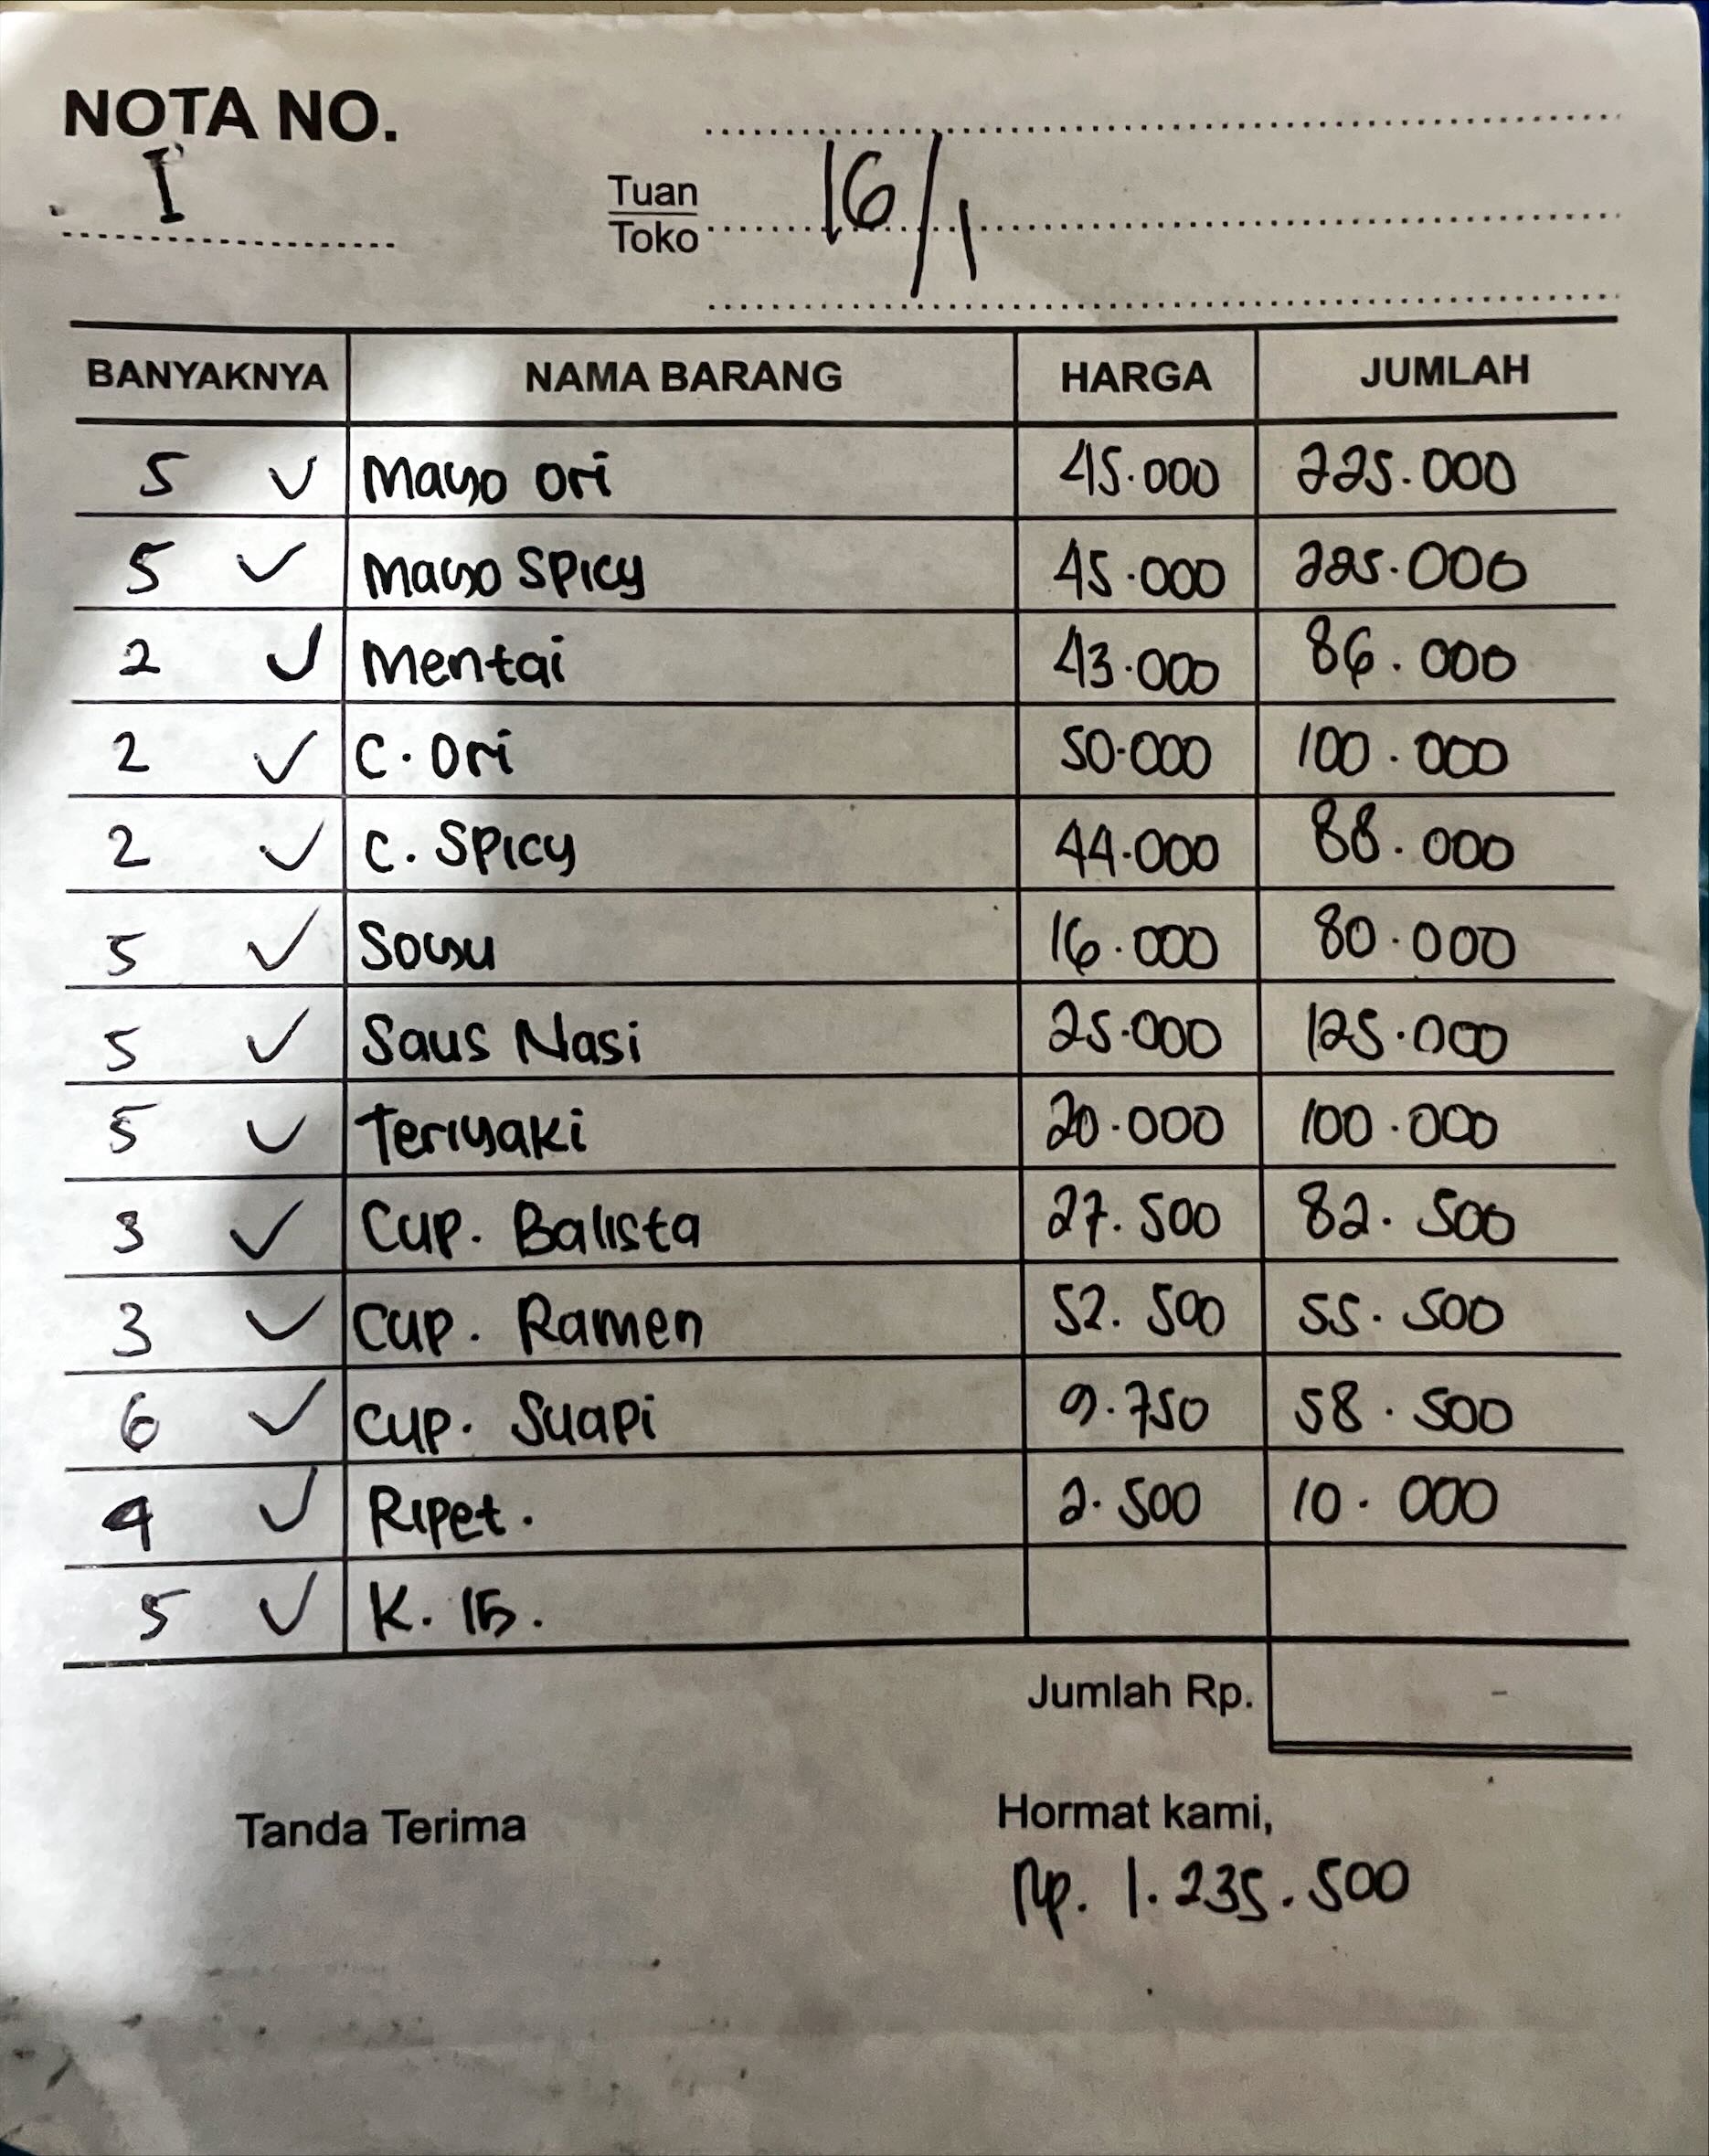 NOTA NO.
I
Tuan
Toko
16/1
BANYAKNYA NAMA BARANG HARGA JUMLAH
5 ✓ Mayo Ori 45.000 225.000
5 ✓ Mayo Spicy 45.000 225.000
2 ✓ Mentai 43.000 86.000
2 ✓ C. Ori 50.000 100.000
2 ✓ C. Spicy 44.000 88.000
5 ✓ Soyu 16.000 80.000
5 ✓ Saus Nasi 25.000 125.000
5 ✓ Teriyaki 20.000 100.000
3 ✓ Cup. Balista 27.500 82.500
3 ✓ Cup. Ramen 52.500 55.500
6 ✓ Cup. Suapi 9.750 58.500
4 ✓ Ripet. 2.500 10.000
5 ✓ K. 15.
Jumlah Rp. -
Tanda Terima Hormat kami,
Rp. 1.235.500